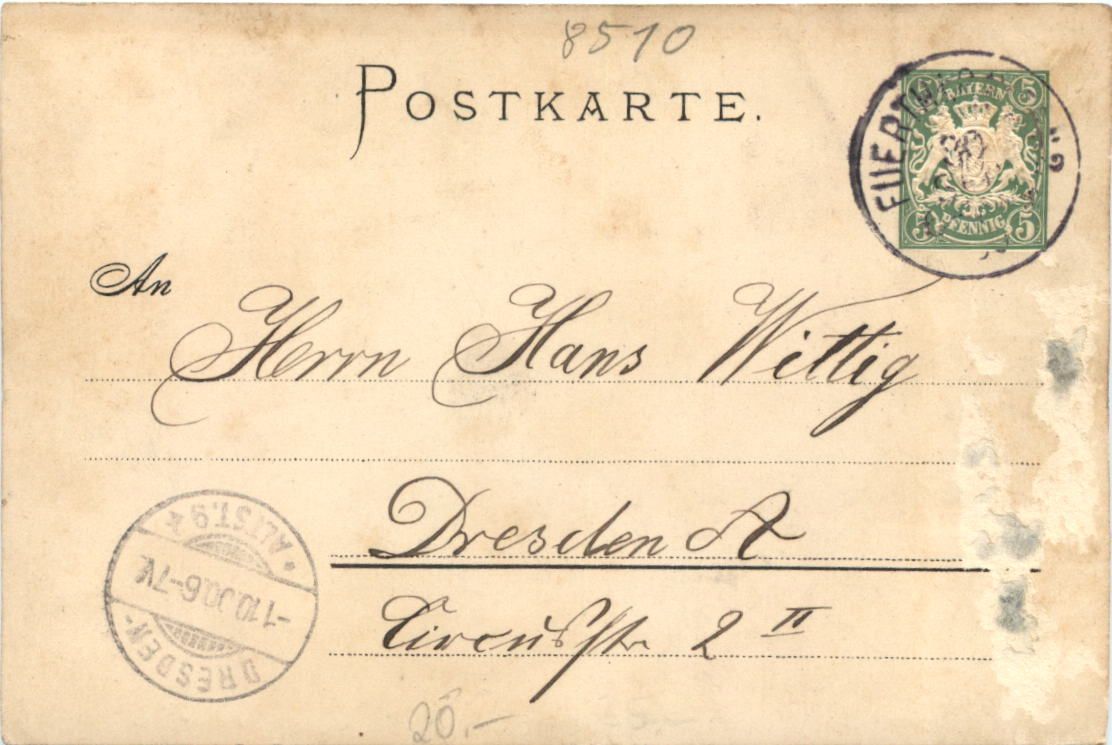 8510
POSTKARTE.
5 BAYERN 5
5 PFENNIG 5
An
Herrn Hans Wittig
Dresden A
Circusstr 2 II
DRESDEN-
-1.10.00.6-7V.
* ALTST.9 *
20.-